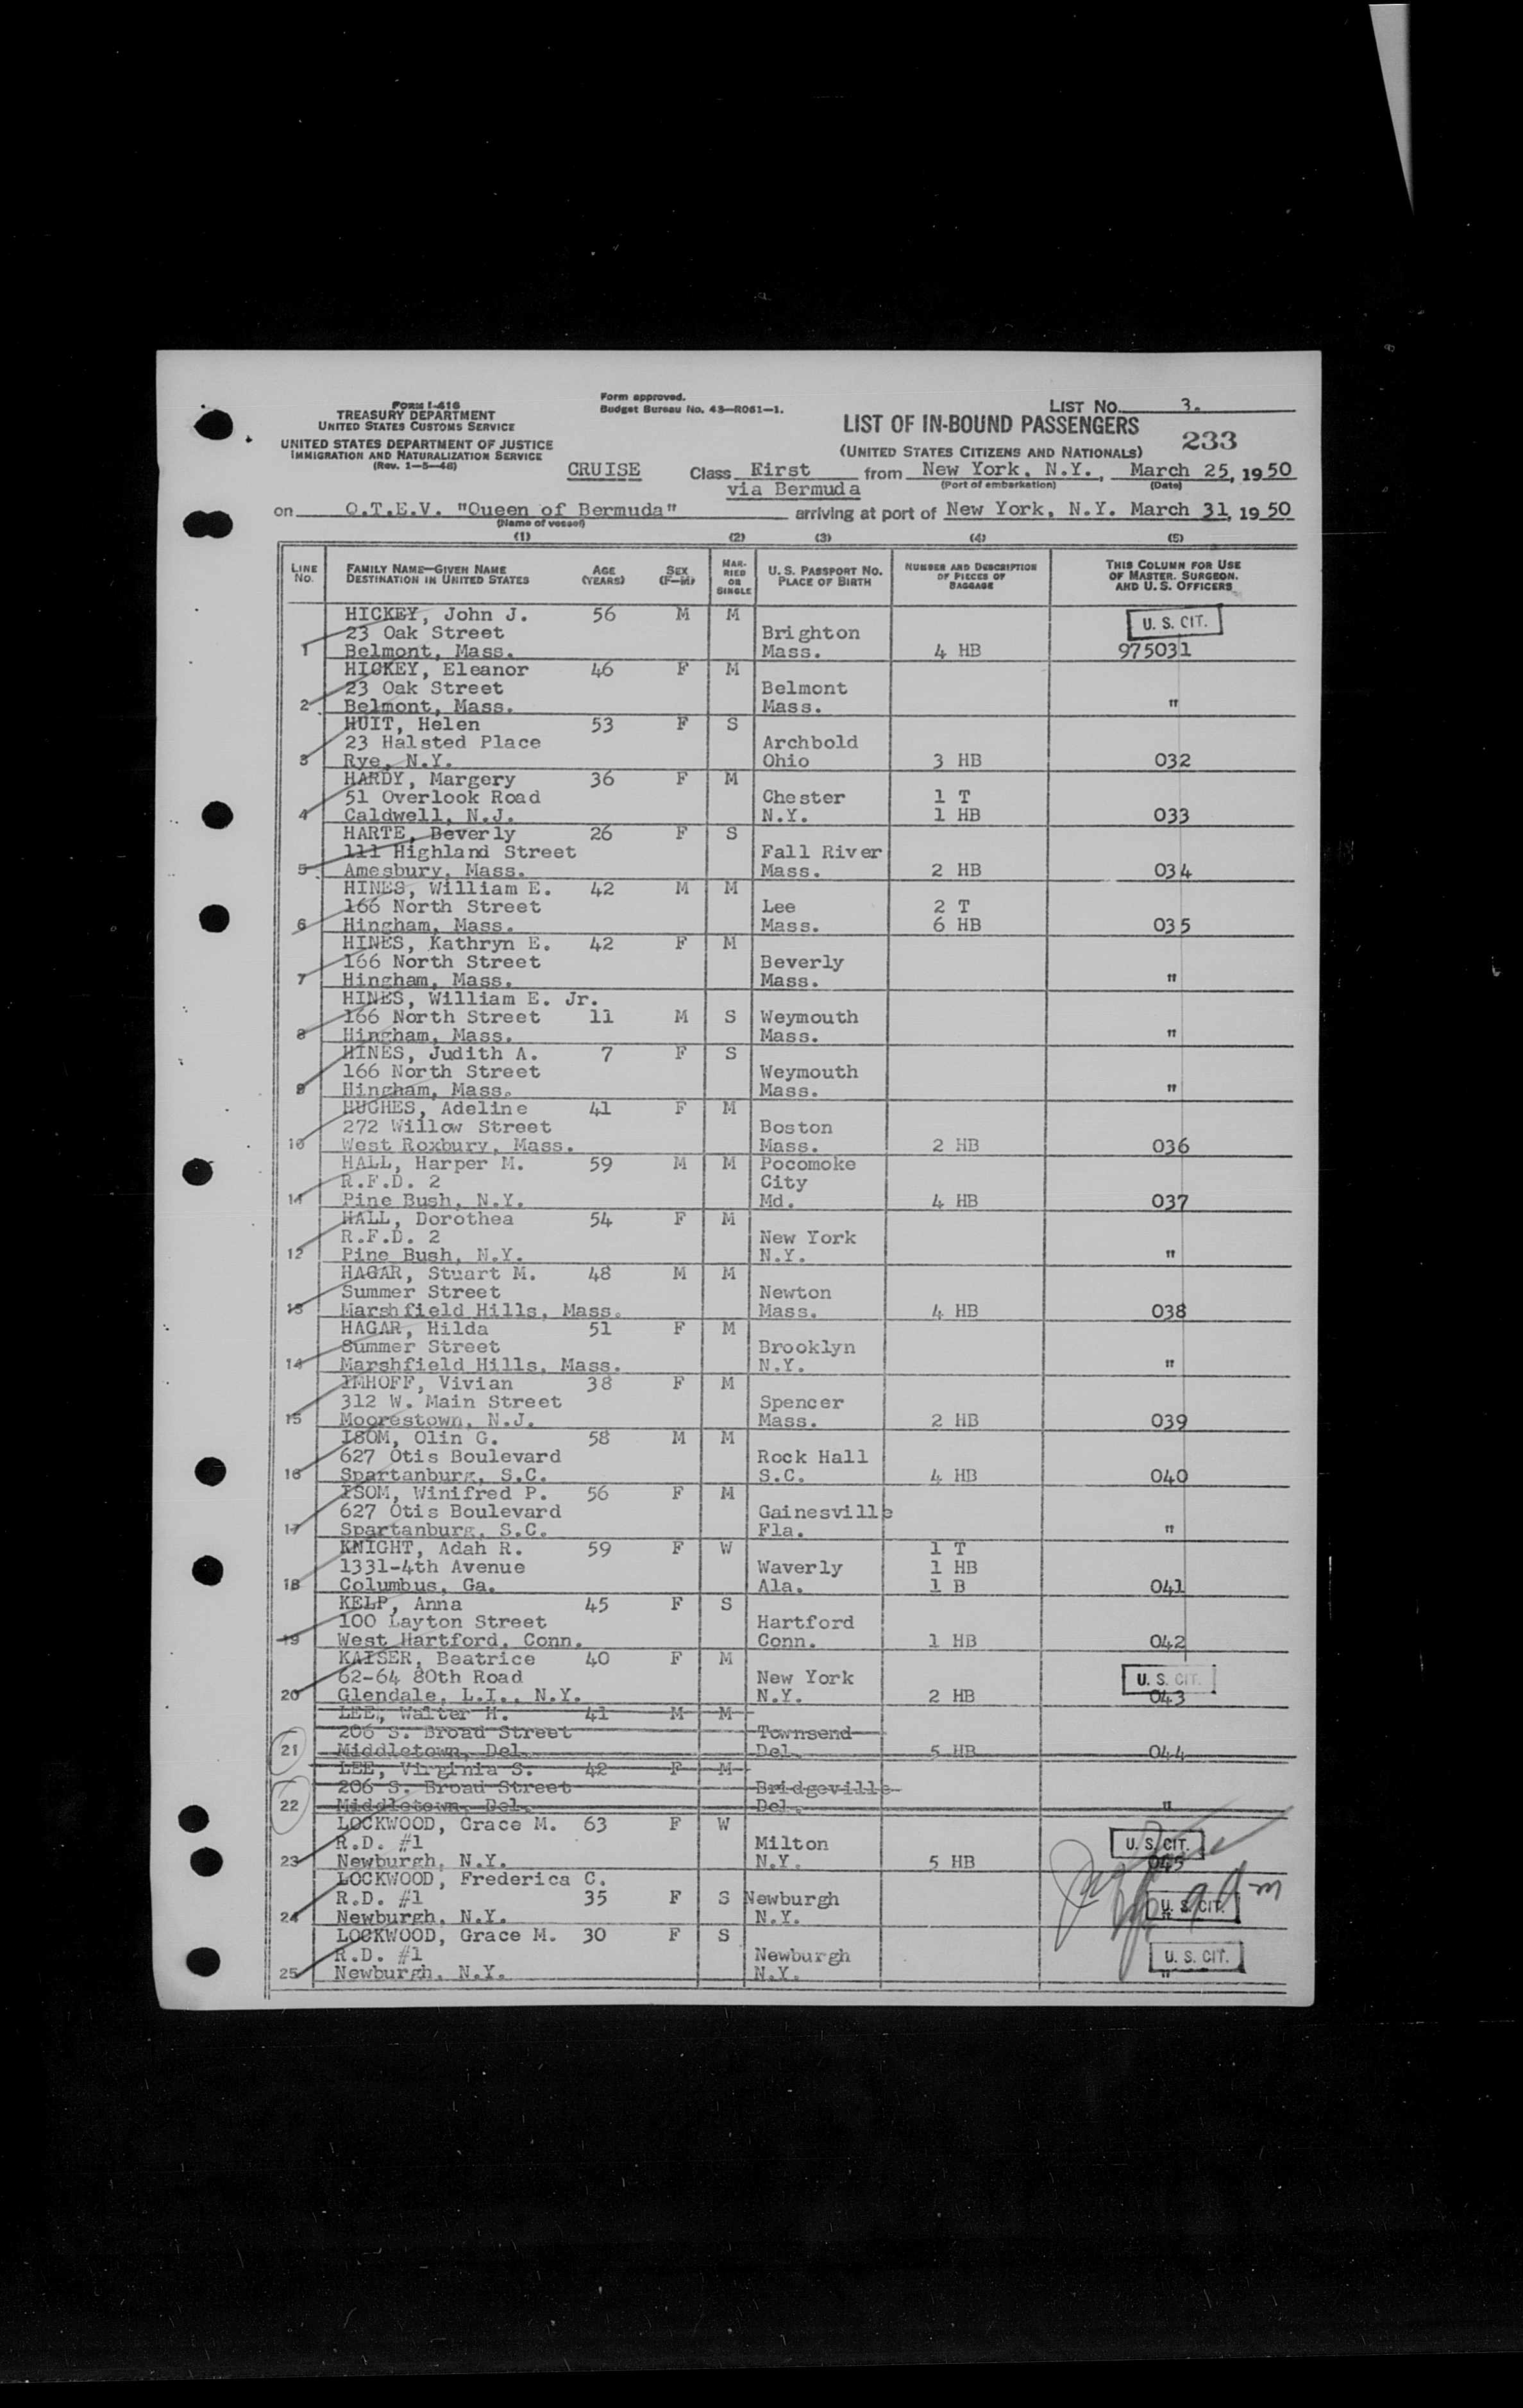 FORM I-416
TREASURY DEPARTMENT
UNITED STATES CUSTOMS SERVICE
UNITED STATES DEPARTMENT OF JUSTICE
IMMIGRATION AND NATURALIZATION SERVICE
(Rev. 1-5-48)
Form approved.
Budget Bureau No. 43-R061-1.
LIST NO. 3.
LIST OF IN-BOUND PASSENGERS
233
(UNITED STATES CITIZENS AND NATIONALS)
CRUISE Class First from New York, N.Y., March 25, 1950
via Bermuda (Port of embarkation) (Date)
on Q.T.E.V. "Queen of Bermuda" arriving at port of New York, N.Y. March 31, 1950
(Name of vessel)
(1) (2) (3) (4) (5)
LINE NO. FAMILY NAME—GIVEN NAME DESTINATION IN UNITED STATES AGE (YEARS) SEX (F-M) MARRIED OR SINGLE U. S. PASSPORT NO. PLACE OF BIRTH NUMBER AND DESCRIPTION OF PIECES OF BAGGAGE THIS COLUMN FOR USE OF MASTER, SURGEON, AND U. S. OFFICERS
HICKEY, John J. 56 M M U. S. CIT.
23 Oak Street Brighton
1 Belmont, Mass. Mass. 4 HB 975031
HICKEY, Eleanor 46 F M
23 Oak Street Belmont
2 Belmont, Mass. Mass. "
HUIT, Helen 53 F S
23 Halsted Place Archbold
3 Rye, N.Y. Ohio 3 HB 032
HARDY, Margery 36 F M
51 Overlook Road Chester 1 T
4 Caldwell, N.J. N.Y. 1 HB 033
HARTE, Beverly 26 F S
111 Highland Street Fall River
5 Amesbury, Mass. Mass. 2 HB 034
HINES, William E. 42 M M
166 North Street Lee 2 T
6 Hingham, Mass. Mass. 6 HB 035
HINES, Kathryn E. 42 F M
166 North Street Beverly
7 Hingham, Mass. Mass. "
HINES, William E. Jr.
166 North Street 11 M S Weymouth
8 Hingham, Mass. Mass. "
HINES, Judith A. 7 F S
166 North Street Weymouth
9 Hingham, Mass. Mass. "
HUGHES, Adeline 41 F M
272 Willow Street Boston
10 West Roxbury, Mass. Mass. 2 HB 036
HALL, Harper M. 59 M M Pocomoke
R.F.D. 2 City
11 Pine Bush, N.Y. Md. 4 HB 037
HALL, Dorothea 54 F M
R.F.D. 2 New York
12 Pine Bush, N.Y. N.Y. "
HAGAR, Stuart M. 48 M M
Summer Street Newton
13 Marshfield Hills, Mass. Mass. 4 HB 038
HAGAR, Hilda 51 F M
Summer Street Brooklyn
14 Marshfield Hills, Mass. N.Y. "
IMHOFF, Vivian 38 F M
312 W. Main Street Spencer
15 Moorestown, N.J. Mass. 2 HB 039
ISOM, Olin G. 58 M M
627 Otis Boulevard Rock Hall
16 Spartanburg, S.C. S.C. 4 HB 040
ISOM, Winifred P. 56 F M
627 Otis Boulevard Gainesville
17 Spartanburg, S.C. Fla. "
KNIGHT, Adah R. 59 F W 1 T
1331-4th Avenue Waverly 1 HB
18 Columbus, Ga. Ala. 1 B 041
KELP, Anna 45 F S
100 Layton Street Hartford
19 West Hartford, Conn. Conn. 1 HB 042
KAISER, Beatrice 40 F M
62-64 80th Road New York U. S. CIT.
20 Glendale, L.I., N.Y. N.Y. 2 HB 043
LEE, Walter H. 41 M M
206 S. Broad Street Townsend
21 Middletown, Del. Del. 5 HB 044
LEE, Virginia S. 42 F M
206 S. Broad Street Bridgeville
22 Middletown, Del. Del. "
LOCKWOOD, Grace M. 63 F W
R.D. #1 Milton U. S. CIT.
23 Newburgh, N.Y. N.Y. 5 HB 045
LOCKWOOD, Frederica C.
R.D. #1 35 F S Newburgh U. S. CIT.
24 Newburgh, N.Y. N.Y. "
LOCKWOOD, Grace M. 30 F S
R.D. #1 Newburgh U. S. CIT.
25 Newburgh, N.Y. N.Y. "